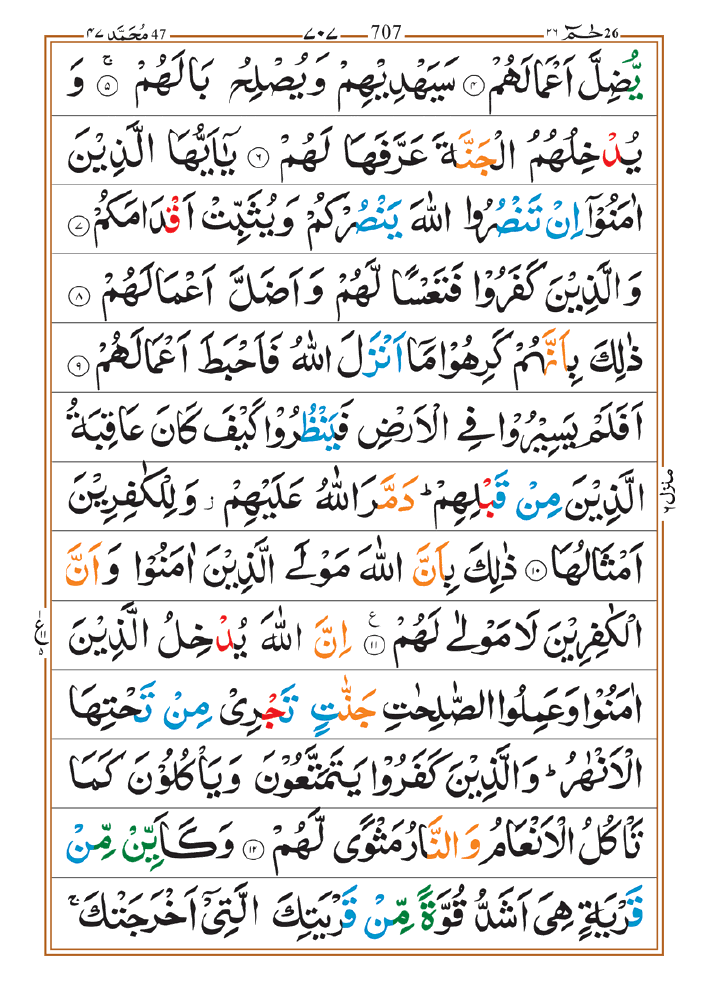 حٰمٓ 26 ٢٦ 707 ٧٠٧ مُحَمَّد 47 ٤٧
يُّضِلَّ اَعۡمَالَهُمۡ ﴿۴﴾ سَيَهۡدِيۡهِمۡ وَيُصۡلِحُ بَالَهُمۡ ۚ ﴿۵﴾ وَ
يُدۡخِلُهُمُ الۡجَنَّةَ عَرَّفَهَا لَهُمۡ ﴿۶﴾ يٰۤاَيُّهَا الَّذِيۡنَ
اٰمَنُوۡۤا اِنۡ تَنۡصُرُوا اللّٰهَ يَنۡصُرۡكُمۡ وَيُثَبِّتۡ اَقۡدَامَكُمۡ ﴿۷﴾
وَالَّذِيۡنَ كَفَرُوۡا فَتَعۡسًا لَّهُمۡ وَاَضَلَّ اَعۡمَالَهُمۡ ﴿۸﴾
ذٰلِكَ بِاَنَّهُمۡ كَرِهُوۡا مَاۤ اَنۡزَلَ اللّٰهُ فَاَحۡبَطَ اَعۡمَالَهُمۡ ﴿۹﴾
اَفَلَمۡ يَسِيۡرُوۡا فِى الۡاَرۡضِ فَيَنۡظُرُوۡا كَيۡفَ كَانَ عَاقِبَةُ
الَّذِيۡنَ مِنۡ قَبۡلِهِمۡ‌ؕ دَمَّرَ اللّٰهُ عَلَيۡهِمۡ‌ ز وَلِلۡكٰفِرِيۡنَ
اَمۡثَالُهَا ﴿۱۰﴾ ذٰلِكَ بِاَنَّ اللّٰهَ مَوۡلَى الَّذِيۡنَ اٰمَنُوۡا وَاَنَّ
الۡكٰفِرِيۡنَ لَا مَوۡلٰى لَهُمۡ ﴿۱۱﴾ ع اِنَّ اللّٰهَ يُدۡخِلُ الَّذِيۡنَ
اٰمَنُوۡا وَعَمِلُوا الصّٰلِحٰتِ جَنّٰتٍ تَجۡرِىۡ مِنۡ تَحۡتِهَا
الۡاَنۡهٰرُ‌ؕ وَالَّذِيۡنَ كَفَرُوۡا يَتَمَتَّعُوۡنَ وَيَاۡكُلُوۡنَ كَمَا
تَاۡكُلُ الۡاَنۡعَامُ وَالنَّارُ مَثۡوًى لَّهُمۡ ﴿۱۲﴾ وَكَاَيِّنۡ مِّنۡ
قَرۡيَةٍ هِىَ اَشَدُّ قُوَّةً مِّنۡ قَرۡيَتِكَ الَّتِىۡۤ اَخۡرَجَتۡكَ‌ۚ
منزل ٦